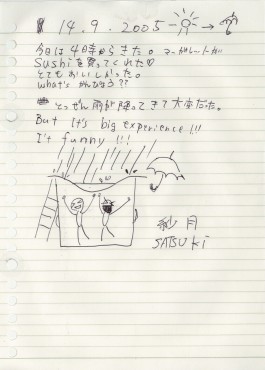 14.9.2005
今日は4時からきた。マーガレットが
Sushiを買ってくれた♡
とてもおいしかった。
What's がんぴょう??
とつぜん雨が降ってきて大変だった。
But It's big experience!!!
It's funny!!!
秒月
SATSUKi